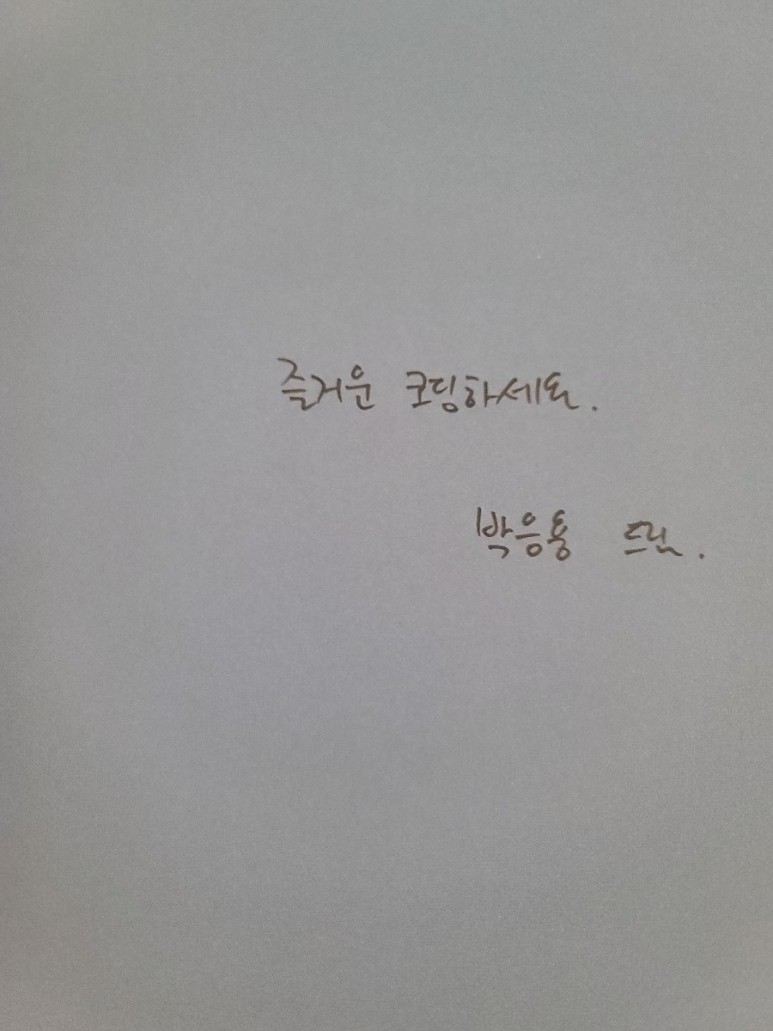 즐거운 코딩하세요.
박응용 드림.